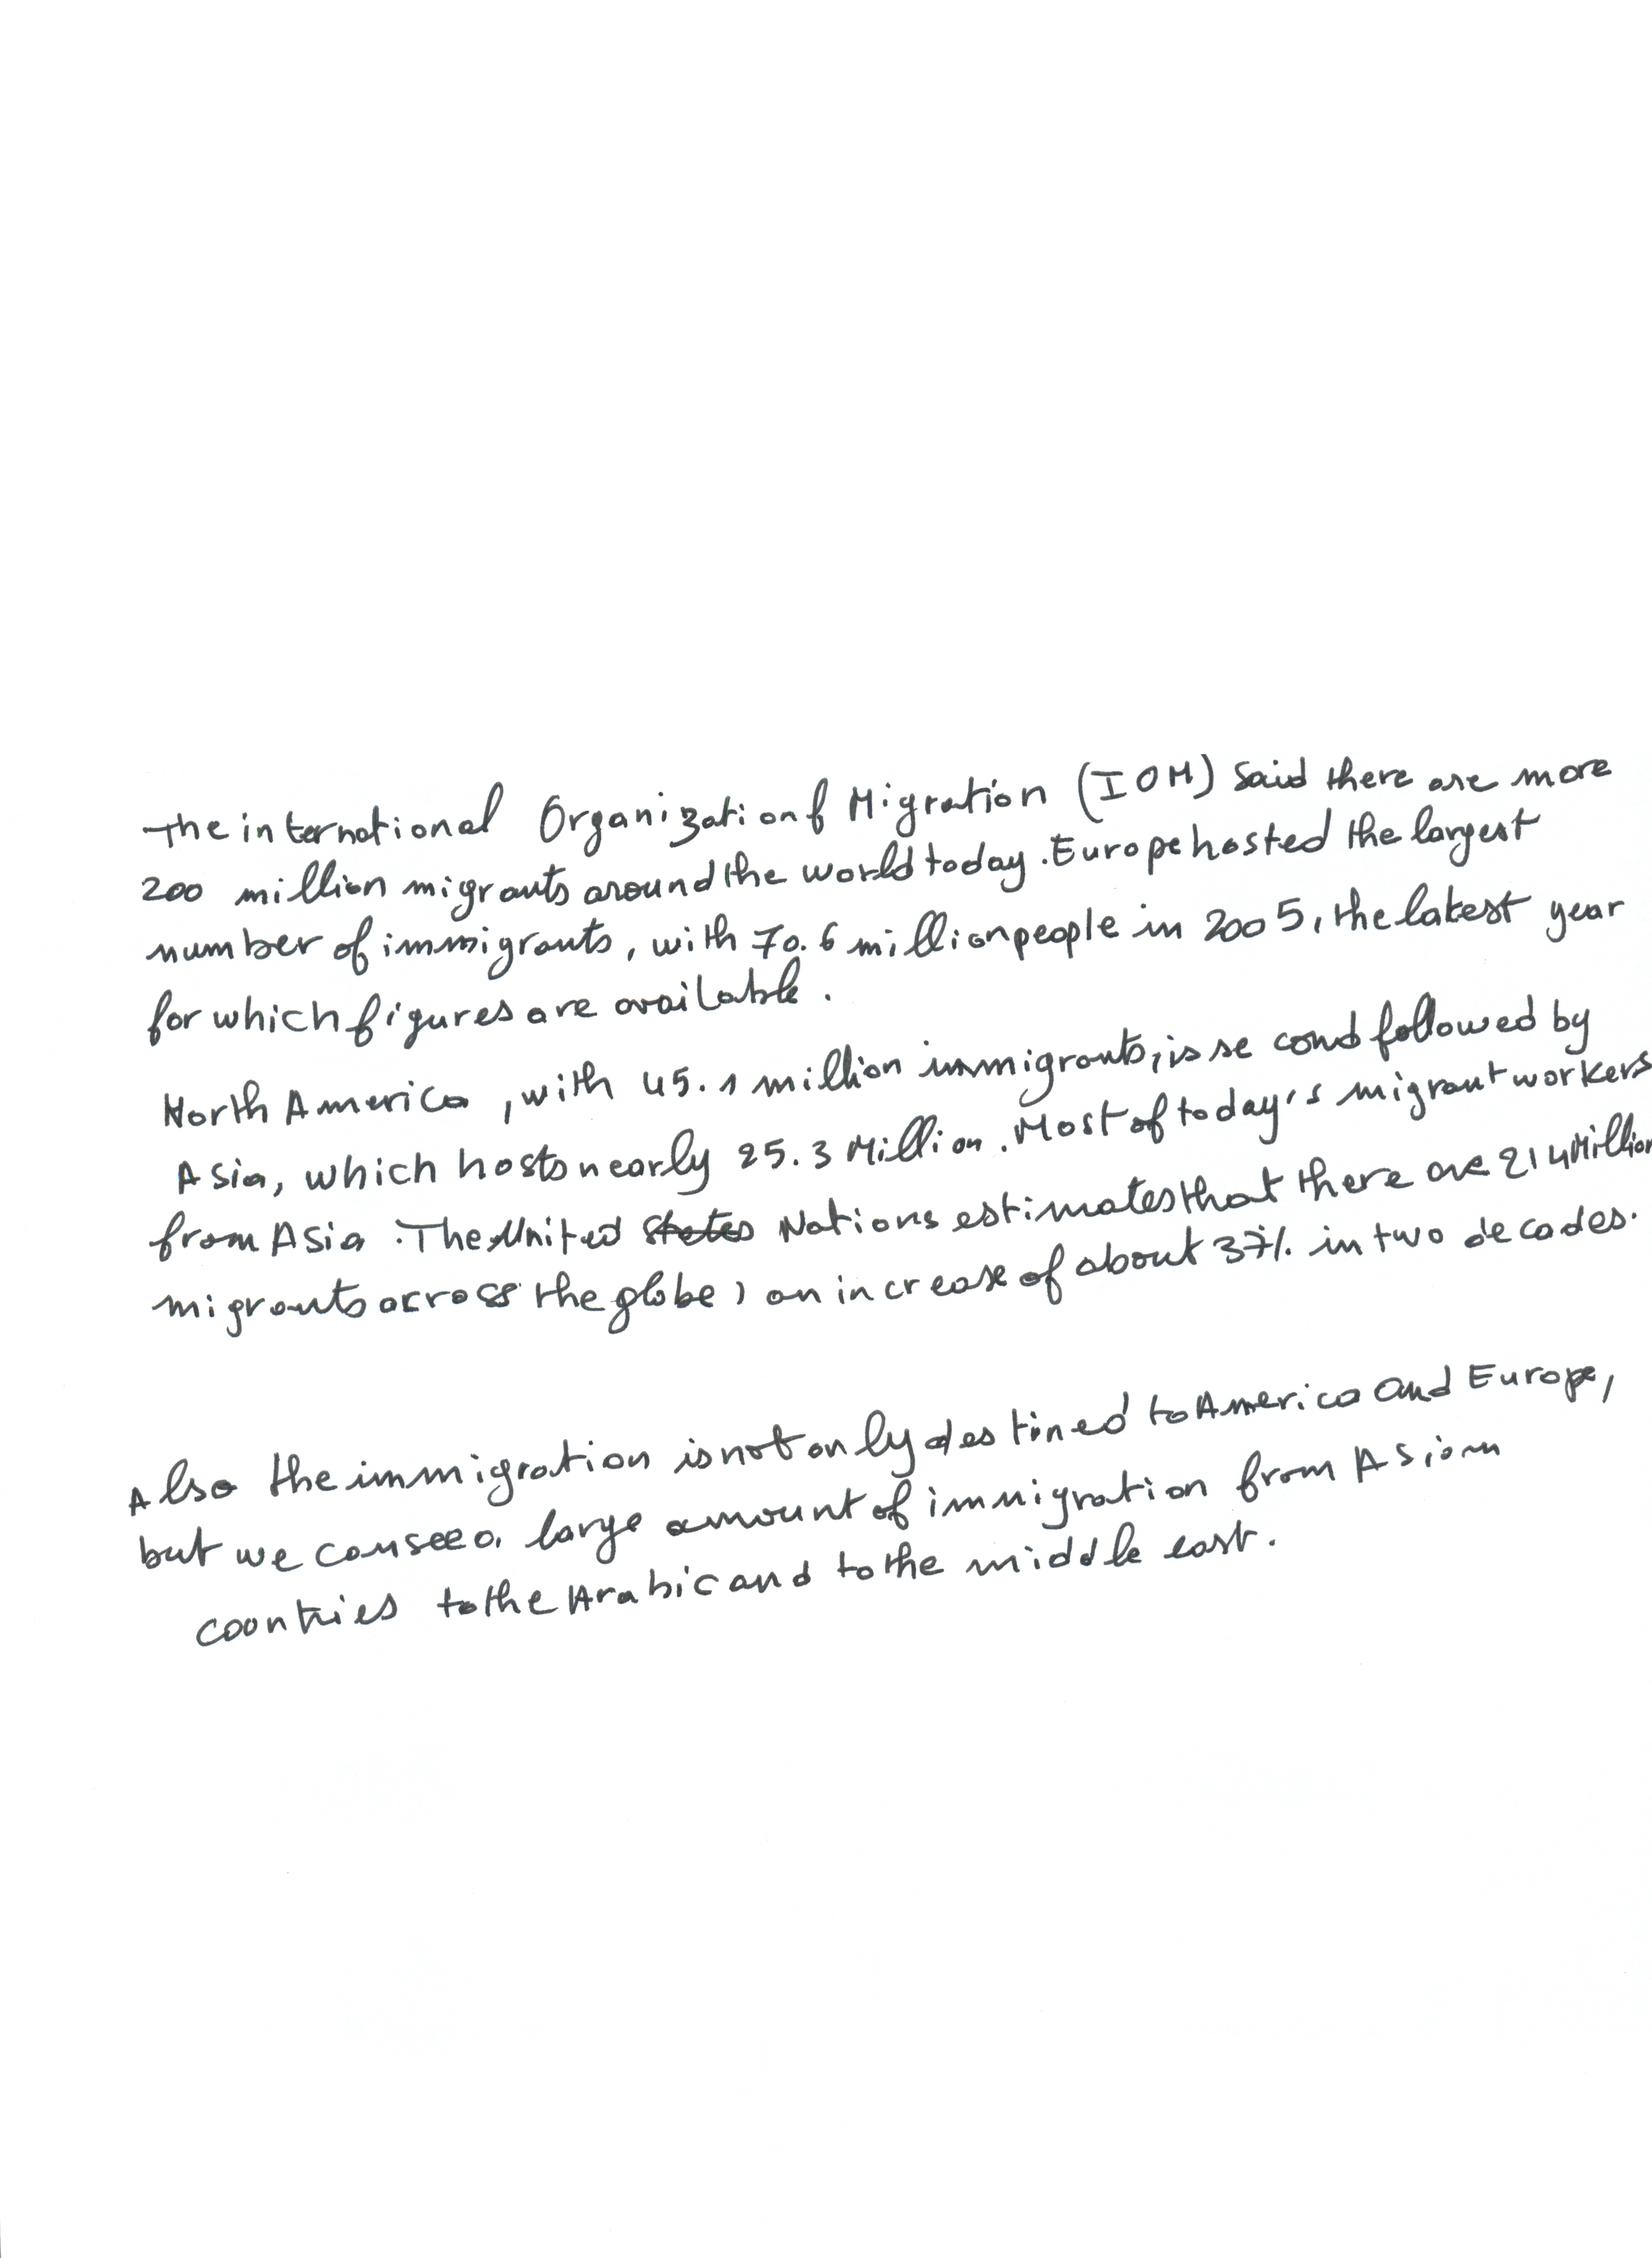 The international Organization of Migration (IOM) said there are more
200 million migrants around the world today. Europe hosted the largest
number of immigrants, with 70.6 million people in 2005, the latest year
for which figures are available.
North America, with 45.1 million immigrants, is second followed by
Asia, which hosts nearly 25.3 Million. Most of today's migrant workers
from Asia. The United States Nations estimates that there are 214 Million
migrants across the globe, an increase of about 37% in two decades.
Also the immigration is not only destined to America and Europe,
but we can see a large amount of immigration from Asian
countries to the Arabic and to the middle east.